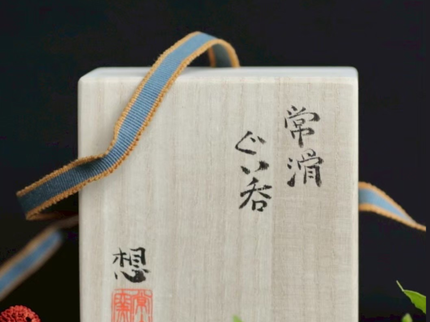 常滑
ぐい呑
想